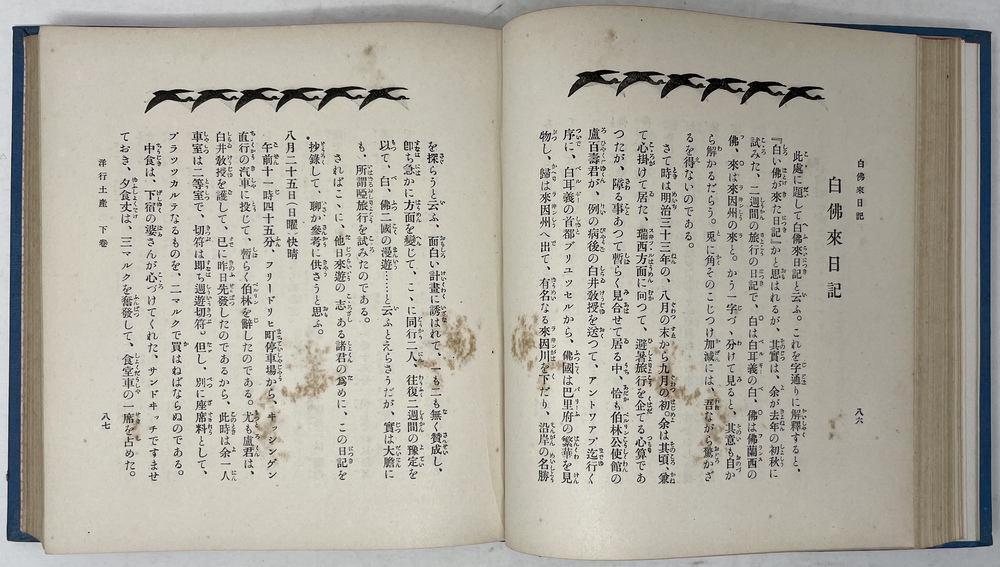 白佛來日記
八六
白佛來日記
此處に題して白佛來日記と云ふ。これを字通りに解釋すると、
『白い佛が來た日記』かと思はれるが、其實は、余が去年の初秋に
試みた、二週間の旅行の日記で、白は白耳義の白、佛は佛蘭西の
佛、來は來因州の來と。かう一字づゝ分けて見ると、其意も自か
ら解かるだらう。兎に角そのこじつけ加減には、吾ながら驚かざ
るを得ないのである。
さて時は明治三十三年の、八月の末から九月の初。余は其頃、兼
て心掛けて居た、瑞西方面に向つて、避暑旅行を企てる心算であ
つたが、障る事あつて暫らく見合せて居る中、恰も伯林公使館の
盧百壽君が、例の病後の白井敎授を送つて、アントワアプ迄行く
序に、白耳義の首都ブリユツセルから、佛國は巴里府の繁華を見
物し、歸は來因州へ出て、有名なる來因川を下だり、沿岸の名勝
を探らうと云ふ、面白い計畫に誘はれて、一も二も無く賛成し、
卽ち急かに方面を變じて、こゝに同行二人、往復二週間の豫定を
以て、白、佛二國の漫遊……と云ふとえらさうだが、實は大膽に
も、所謂啞旅行を試みたのである。
さればこゝに、他日來遊の志ある諸君の爲めに、この日記を
抄錄して、聊か參考に供さうと思ふ。
八月二十五日(日曜)快晴
午前十一時四十五分、フリードリヒ町停車場から、ヰッシンゲン
直行の汽車に投じて、暫らく伯林を辭したのである。尤も盧君は、
白井敎授を護して、已に昨日先發したのであるから、此時は余一人
車室は二等室で、切符は卽ち週遊切符。但し、別に座席料として、
プラッツカルテなるものを、二マルクで買はねばならぬのである。
中食は、下宿の婆さんが心づけてくれた、サンドヰッチですませ
ておき、夕食丈は、三マルクを奮發して、食堂車の一席を占めた。
洋行土產 下卷
八七